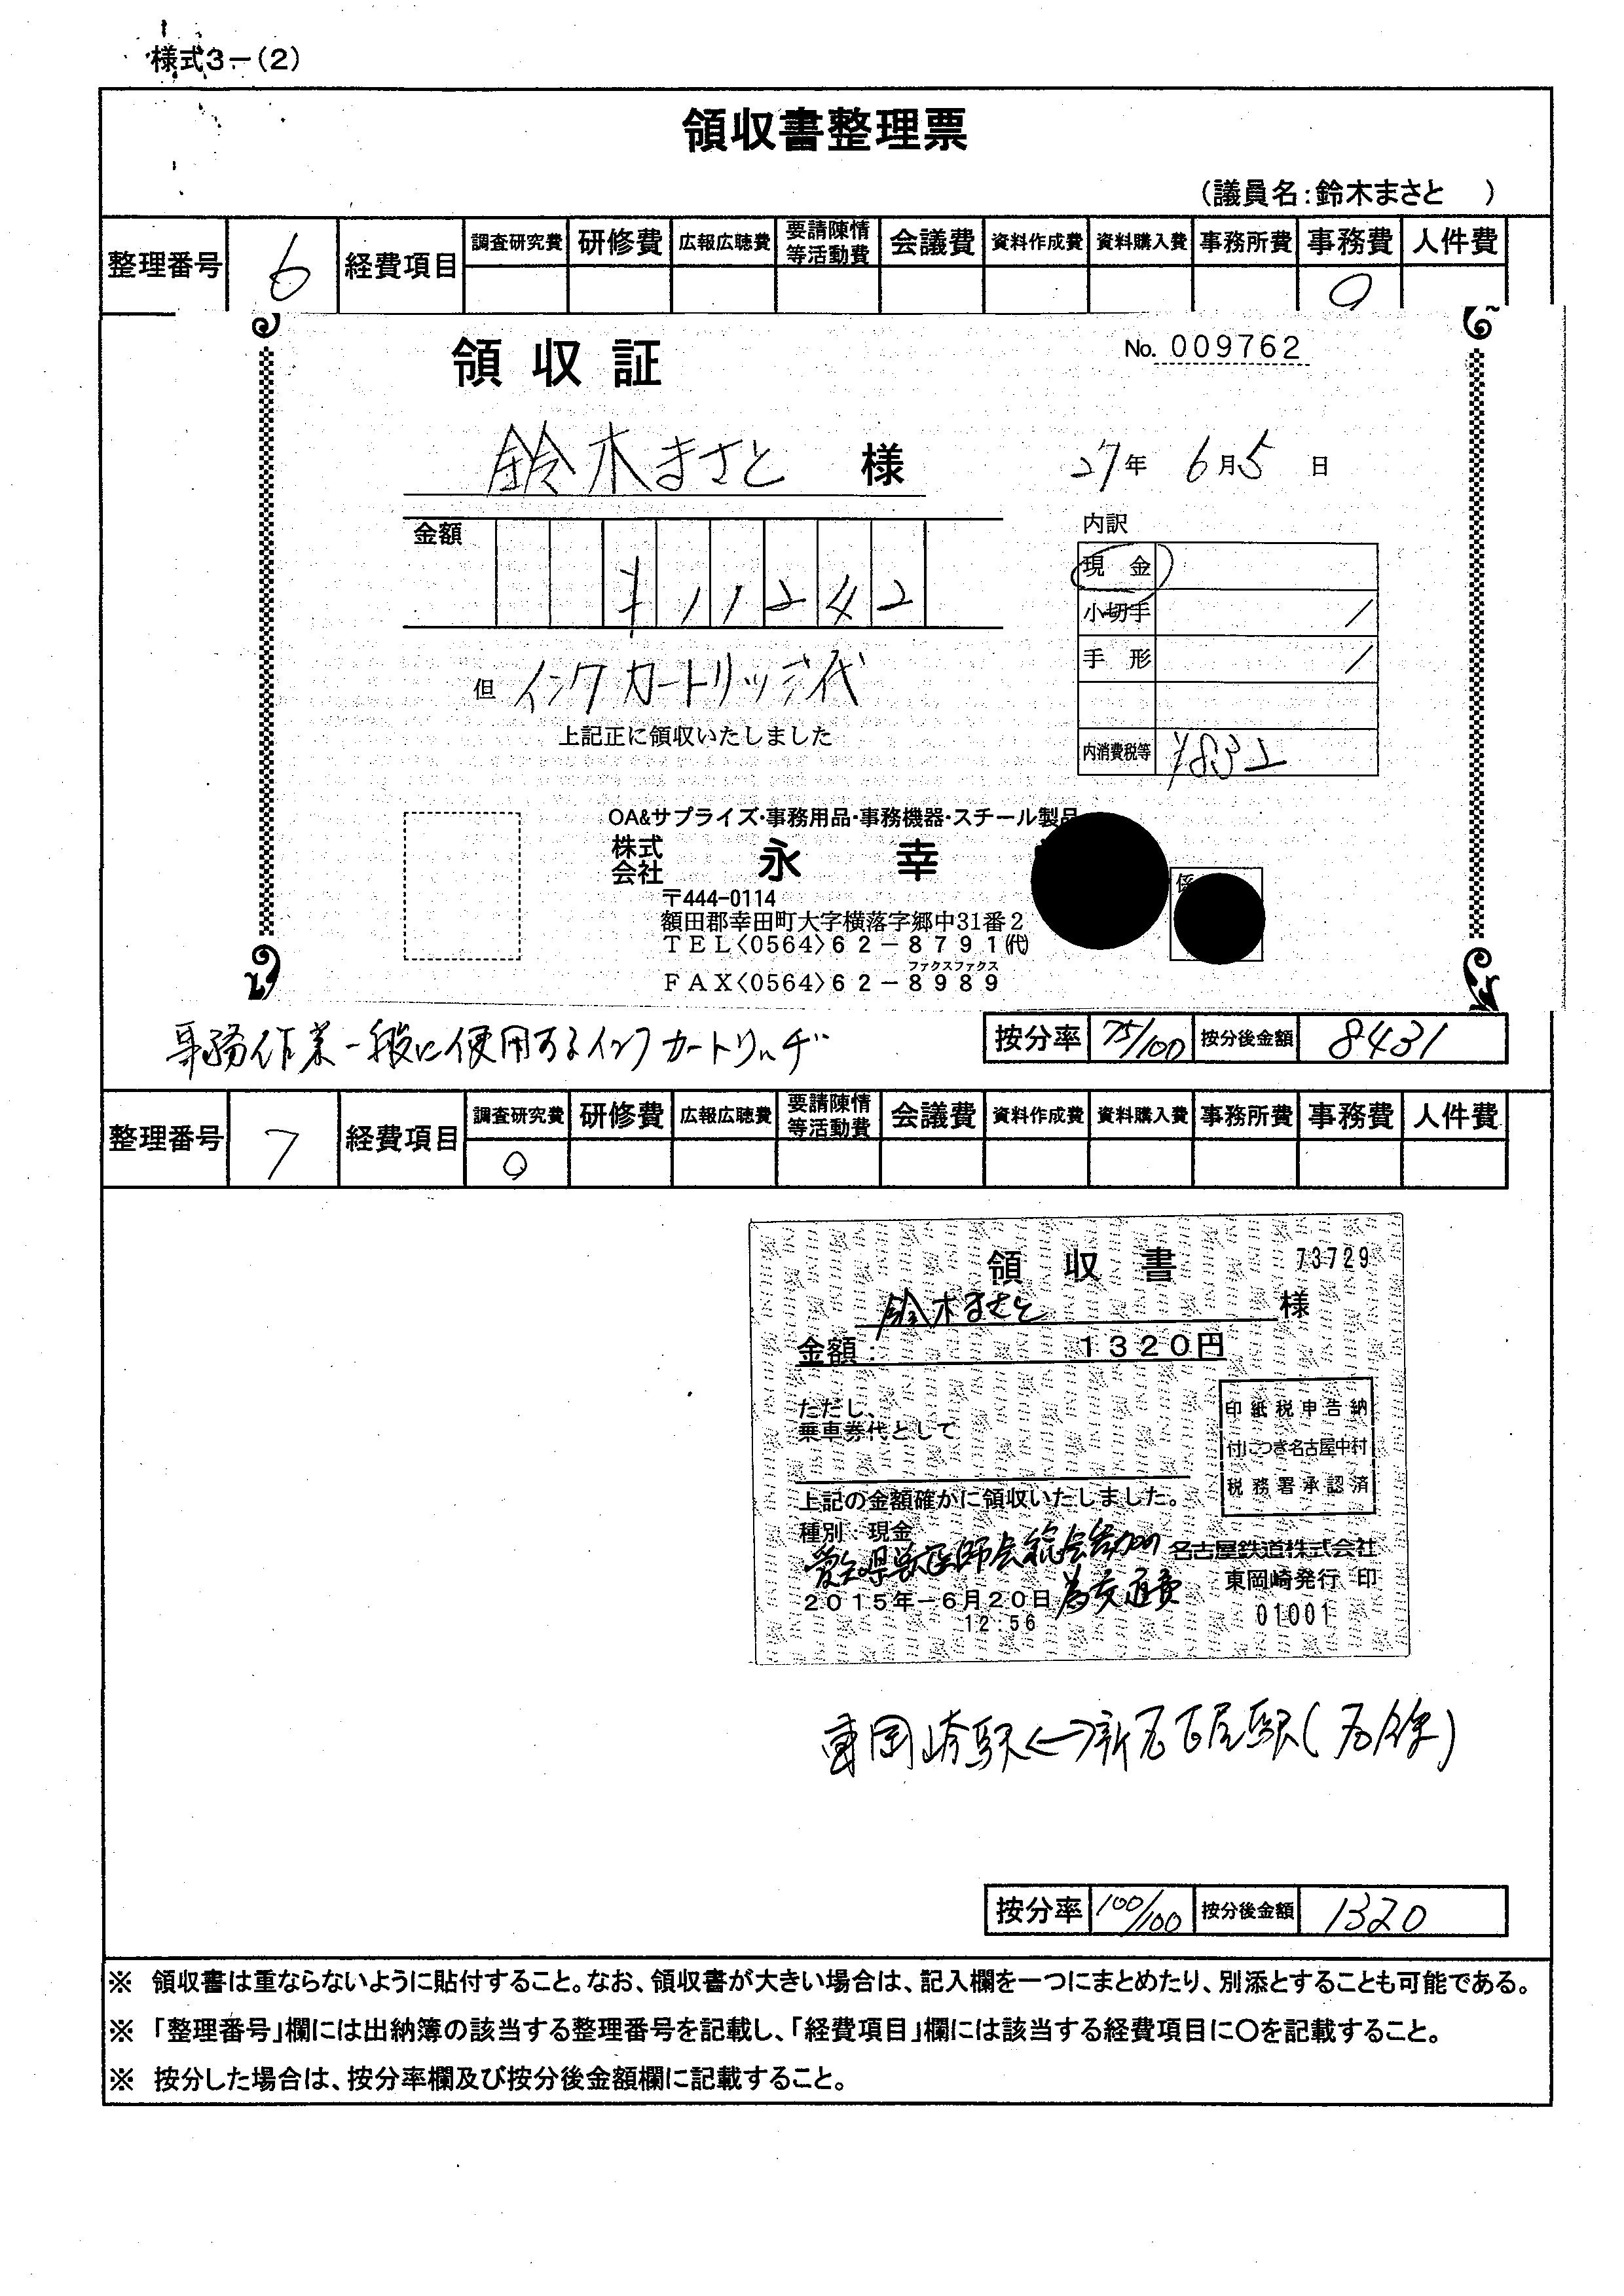 様式3-(2)
領収書整理票
(議員名:鈴木まさと )
整理番号 6 経費項目 調査研究費 研修費 広報広聴費 要請陳情等活動費 会議費 資料作成費 資料購入費 事務所費 事務費 人件費
○
領収証
No. 009762
鈴木まさと 様
27年 6月5日
金額
¥11242
内訳
現金
小切手 /
手形 /
内消費税等 ¥832
但 インクカートリッジ代
上記正に領収いたしました
OA&サプライズ・事務用品・事務機器・スチール製品
株式会社 永幸
係
〒444-0114
額田郡幸田町大字横落字郷中31番2
TEL〈0564〉62-8791(代)
ファクスファクス
FAX〈0564〉62-8989
事務作業一般に使用するインクカートリッヂ
按分率 75/100 按分後金額 8431
整理番号 7 経費項目 調査研究費 研修費 広報広聴費 要請陳情等活動費 会議費 資料作成費 資料購入費 事務所費 事務費 人件費
○
領収書
73729
鈴木まさと 様
金額: 1320円
ただし、
乗車券代として
印紙税申告納
付につき名古屋中村
税務署承認済
上記の金額確かに領収いたしました。
種別:現金
愛知県獣医師会総会参加の
為交通費
名古屋鉄道株式会社
2015年-6月20日
東岡崎発行 印
12:56
01001
東岡崎駅←→新名古屋駅(名鉄)
按分率 100/100 按分後金額 1320
※ 領収書は重ならないように貼付すること。なお、領収書が大きい場合は、記入欄を一つにまとめたり、別添とすることも可能である。
※ 「整理番号」欄には出納簿の該当する整理番号を記載し、「経費項目」欄には該当する経費項目に○を記載すること。
※ 按分した場合は、按分率欄及び按分後金額欄に記載すること。